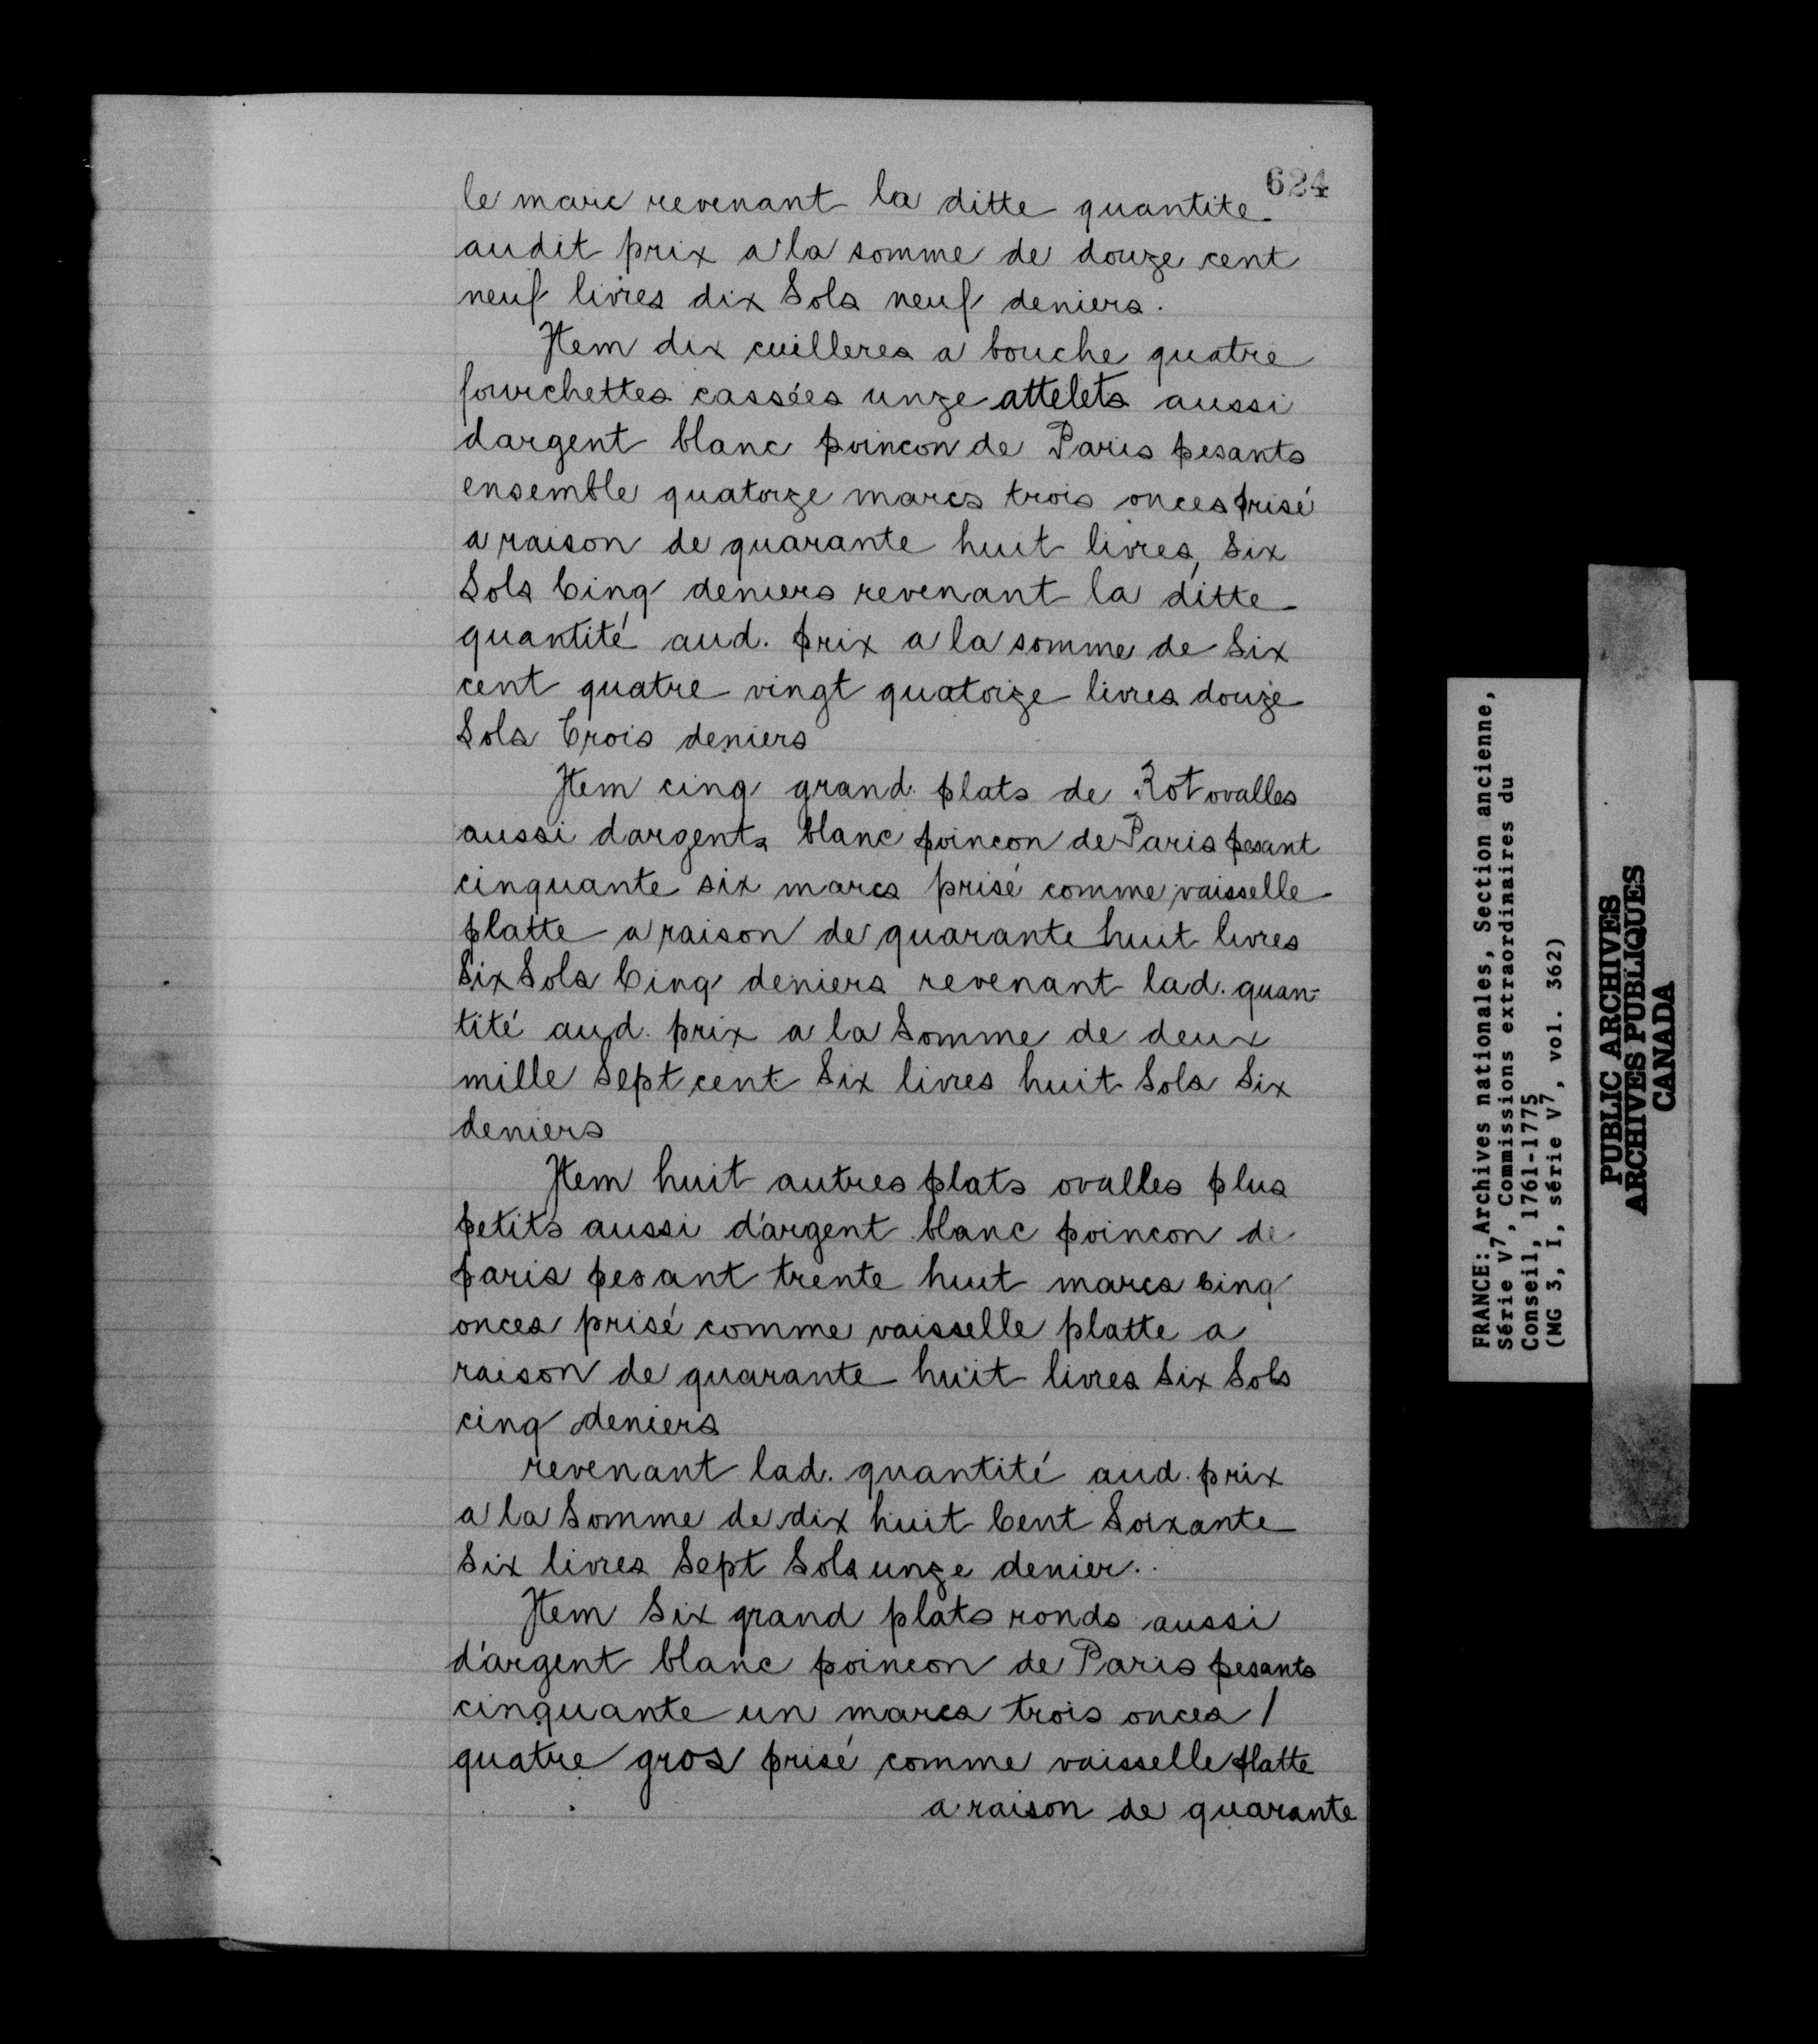 624
le marc revenant la ditte quantite
audit prix a la somme de douze cent
neuf livres dix Sols neuf deniers.
Item dix cuilleres a bouche quatre
fourchettes cassées unze attelets aussi
dargent blanc poincon de Paris pesants
ensemble quatorze marcs trois onces prisé
a raison de quarante huit livres, Six
Sols Cinq deniers revenant la ditte
quantité aud. prix a la somme de Six
cent quatre vingt quatorze livres douze
Sols trois deniers
Item cinq grand plats de Rot ovalles
aussi dargents blanc poincon de Paris pesant
cinquante six marcs prisé comme vaisselle
platte a raison de quarante huit livres
Six Sols Cinq deniers revenant lad. quan-
tité aud. prix a la Somme de deux
mille Sept cent Six livres huit Sols Six
deniers
Item huit autres plats ovalles plus
petits aussi d'argent blanc poincon de
paris pesant trente huit marcs cinq
onces prisé comme vaisselle platte a
raison de quarante huit livres Six Sols
cinq deniers
revenant lad. quantité aud. prix
a la Somme de dix huit Cent Soixante
Six livres Sept Sols unze denier.
Item Six grand plats ronds aussi
d'argent blanc poincon de Paris pesants
cinquante un marcs trois onces /
quatre gros prisé comme vaisselle platte
a raison de quarante
FRANCE: Archives nationales, Section ancienne,
Série V7, Commissions extraordinaires du
Conseil, 1761-1775
(MG 3, I, série V7, vol. 362)
PUBLIC ARCHIVES
ARCHIVES PUBLIQUES
CANADA